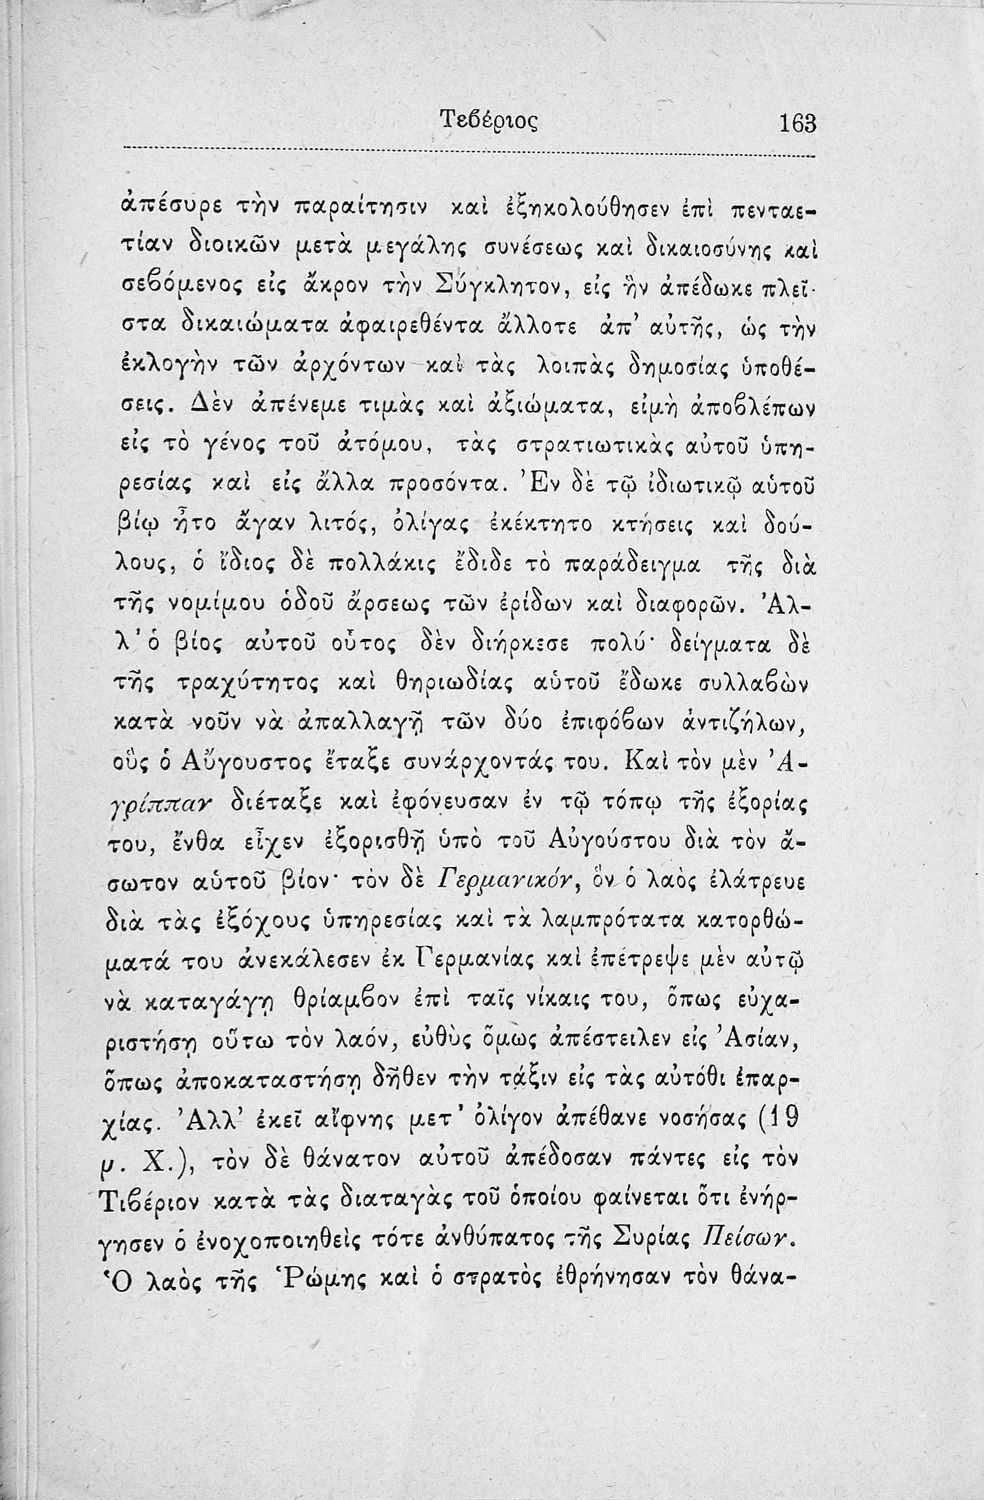 Τεβέριος 163
ἀπέσυρε τὴν παραίτησιν καὶ ἐξηκολούθησεν ἐπὶ πενταε-
τίαν διοικῶν μετὰ μεγάλης συνέσεως καὶ δικαιοσύνης καὶ
σεβόμενος εἰς ἄκρον τὴν Σύγκλητον, εἰς ἣν ἀπέδωκε πλεῖ-
στα δικαιώματα ἀφαιρεθέντα ἄλλοτε ἀπ' αὐτῆς, ὡς τὴν
ἐκλογὴν τῶν ἀρχόντων καὶ τὰς λοιπὰς δημοσίας ὑποθέ-
σεις. Δὲν ἀπένεμε τιμὰς καὶ ἀξιώματα, εἰμὴ ἀποβλέπων
εἰς τὸ γένος τοῦ ἀτόμου, τὰς στρατιωτικὰς αὐτοῦ ὑπη-
ρεσίας καὶ εἰς ἄλλα προσόντα. Ἐν δὲ τῷ ἰδιωτικῷ αὑτοῦ
βίῳ ἦτο ἄγαν λιτός, ὀλίγας ἐκέκτητο κτήσεις καὶ δού-
λους, ὁ ἴδιος δὲ πολλάκις ἔδιδε τὸ παράδειγμα τῆς διὰ
τῆς νομίμου ὁδοῦ ἄρσεως τῶν ἐρίδων καὶ διαφορῶν. Ἀλ-
λ' ὁ βίος αὐτοῦ οὗτος δὲν διήρκεσε πολύ· δείγματα δὲ
τῆς τραχύτητος καὶ θηριωδίας αὑτοῦ ἔδωκε συλλαβὼν
κατὰ νοῦν νὰ ἀπαλλαγῇ τῶν δύο ἐπιφόβων ἀντιζήλων,
οὓς ὁ Αὔγουστος ἔταξε συνάρχοντάς του. Καὶ τὸν μὲν Ἀ-
γρίππαν διέταξε καὶ ἐφόνευσαν ἐν τῷ τόπῳ τῆς ἐξορίας
του, ἔνθα εἶχεν ἐξορισθῆ ὑπὸ τοῦ Αὐγούστου διὰ τὸν ἄ-
σωτον αὑτοῦ βίον· τὸν δὲ Γερμανικόν, ὃν ὁ λαὸς ἐλάτρευε
διὰ τὰς ἐξόχους ὑπηρεσίας καὶ τὰ λαμπρότατα κατορθώ-
ματά του ἀνεκάλεσεν ἐκ Γερμανίας καὶ ἐπέτρεψε μὲν αὐτῷ
νὰ καταγάγῃ θρίαμβον ἐπὶ ταῖς νίκαις του, ὅπως εὐχα-
ριστήσῃ οὕτω τὸν λαόν, εὐθὺς ὅμως ἀπέστειλεν εἰς Ἀσίαν,
ὅπως ἀποκαταστήσῃ δῆθεν τὴν τάξιν εἰς τὰς αὐτόθι ἐπαρ-
χίας. Ἀλλ' ἐκεῖ αἴφνης μετ' ὀλίγον ἀπέθανε νοσήσας (19
μ. Χ.), τὸν δὲ θάνατον αὐτοῦ ἀπέδοσαν πάντες εἰς τὸν
Τιβέριον κατὰ τὰς διαταγὰς τοῦ ὁποίου φαίνεται ὅτι ἐνήρ-
γησεν ὁ ἐνοχοποιηθεὶς τότε ἀνθύπατος τῆς Συρίας Πείσων.
Ὁ λαὸς τῆς Ῥώμης καὶ ὁ στρατὸς ἐθρήνησαν τὸν θάνα-